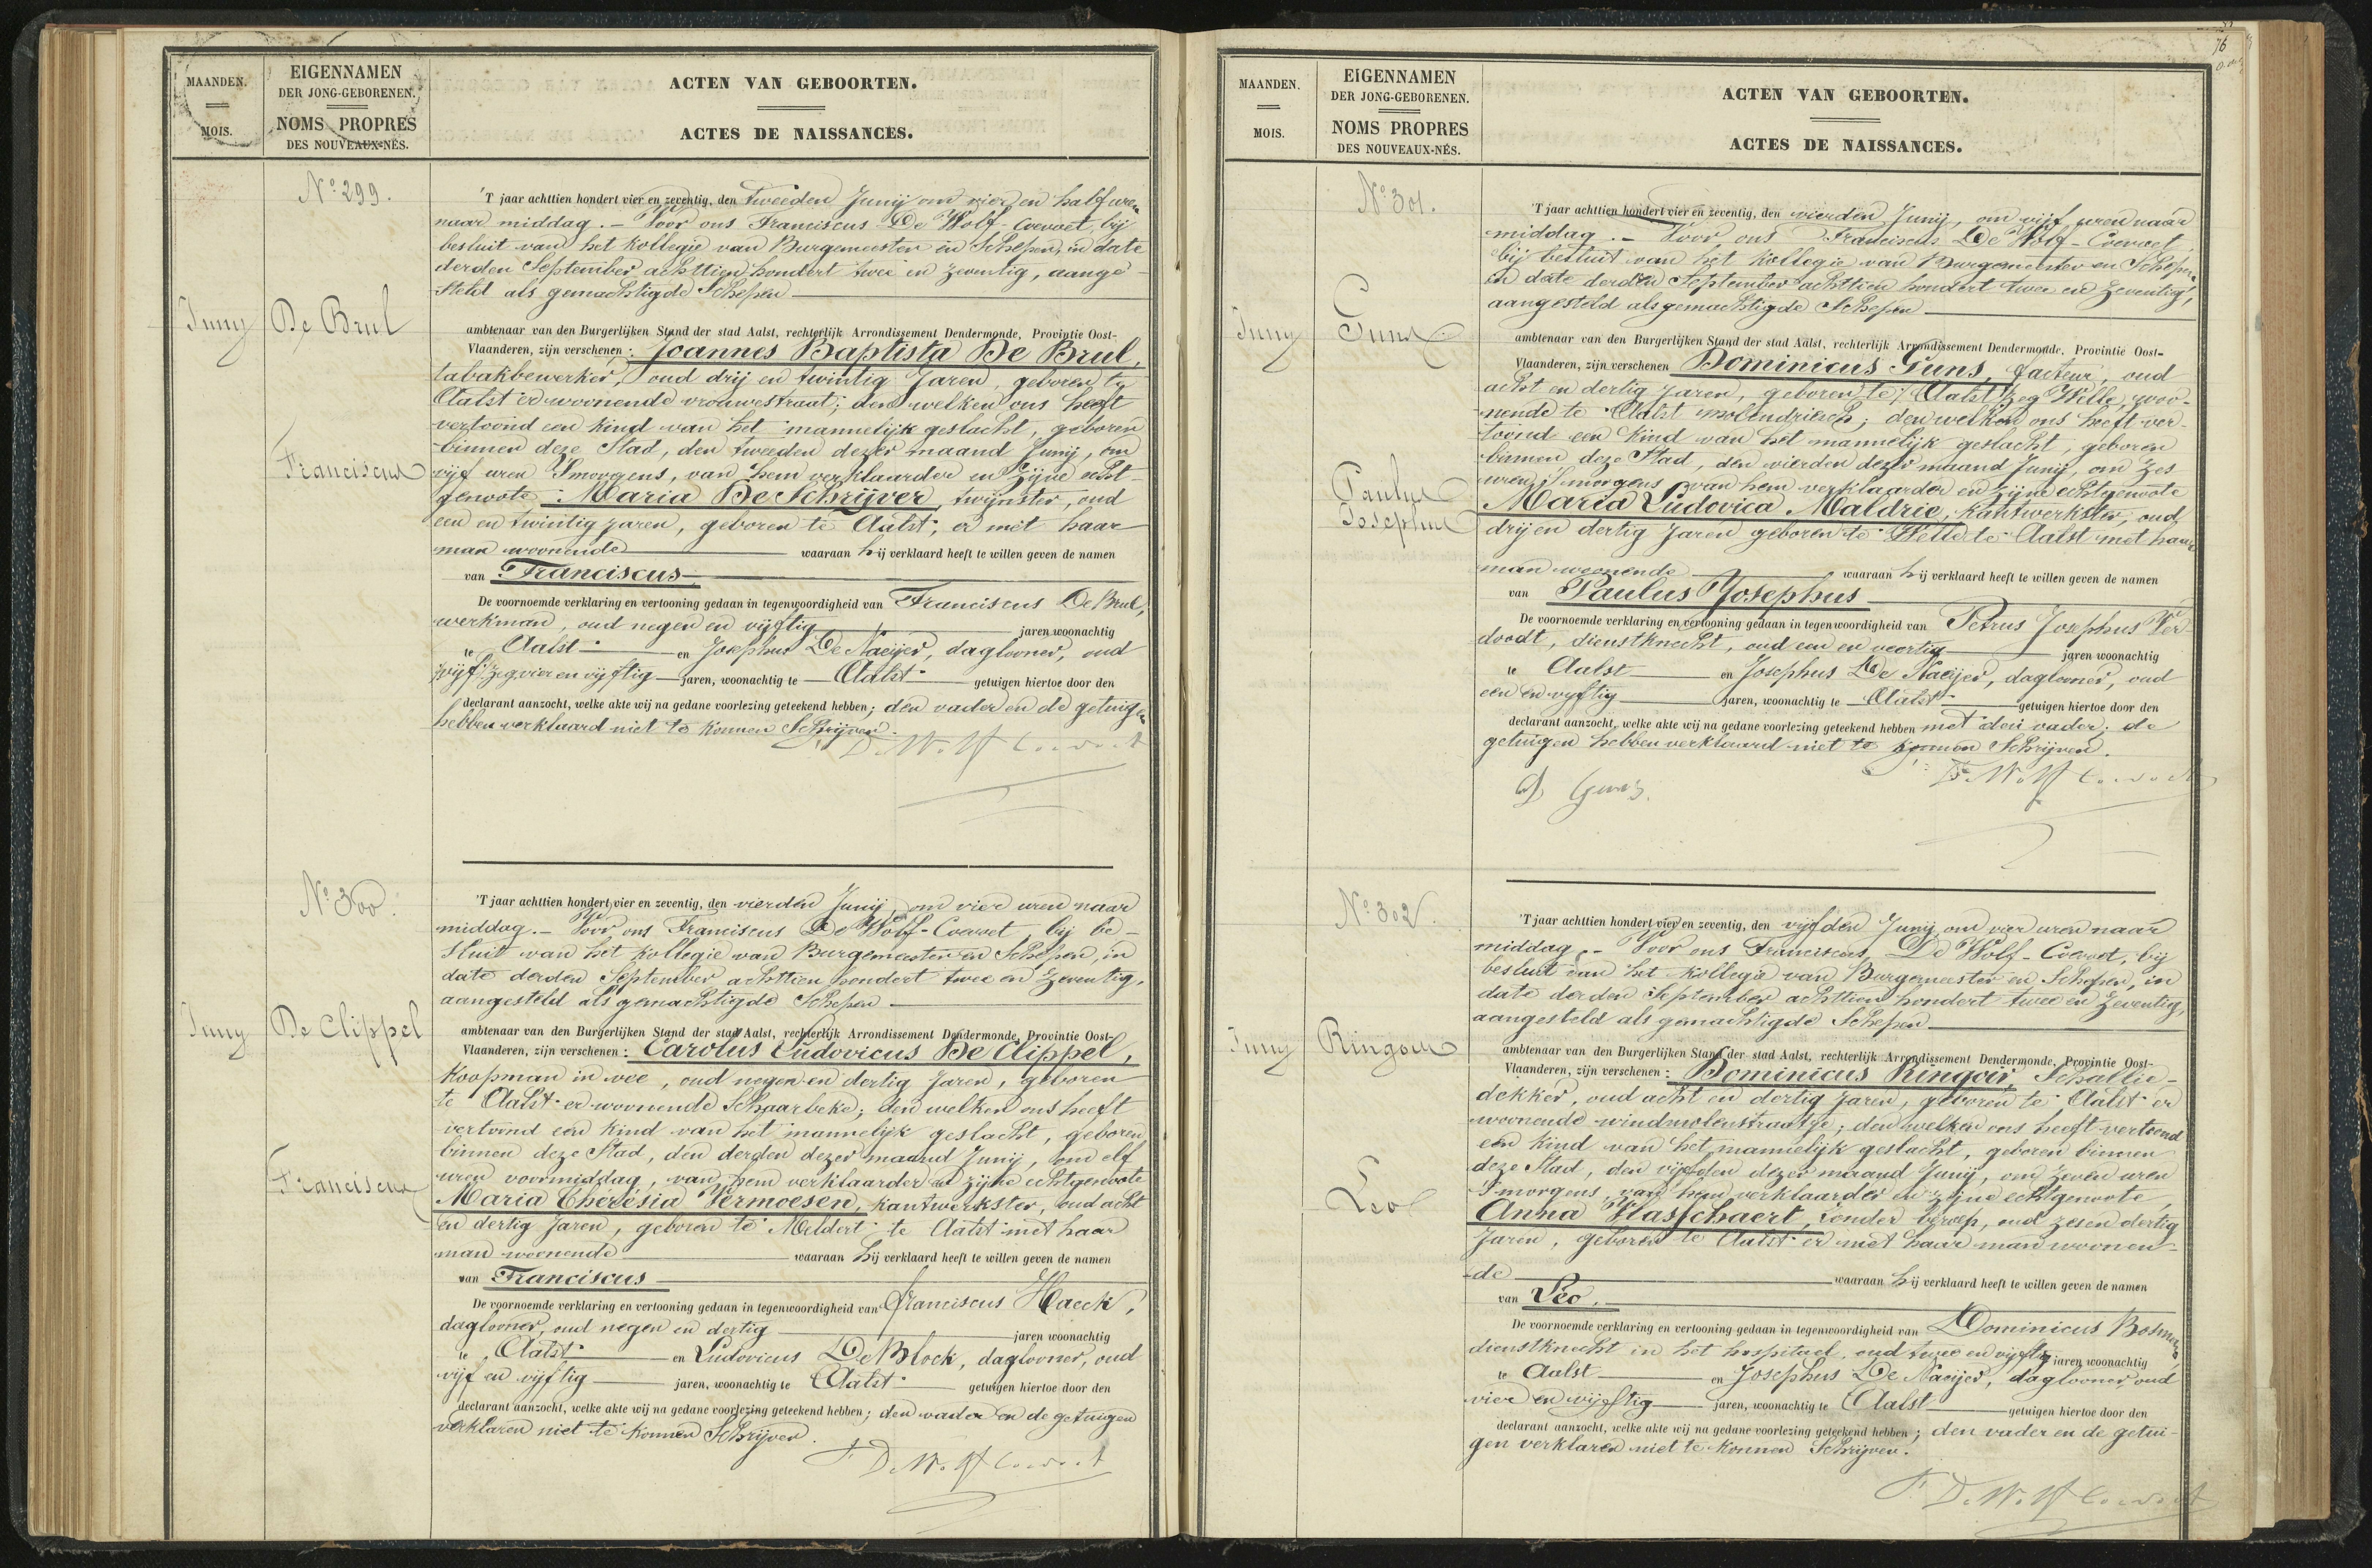 MAANDEN.
MOIS.
EIGENNAMEN
DER JONG-GEBORENEN.
NOMS PROPRES
DES NOUVEAUX-NÉS.
ACTEN VAN GEBOORTEN.
ACTES DE NAISSANCES.
N° 299.
Juny
De Brul
Franciscus
'T jaar achttien hondert vier en zeventig, den tweeden Junij om vier en half uren
naar middag. - Voor ons Franciscus De Wolf-Coevoet, bij
besluit van het kollegie van Burgemeester en Schepen, in date
derden September achttien hondert twee en zeventig, aange-
steld als gemachtigde Schepen
ambtenaar van den Burgerlijken Stand der stad Aalst, rechterlijk Arrondissement Dendermonde, Provintie Oost-
Vlaanderen, zijn verschenen : Joannes Baptista De Brul,
tabakbewerker, oud drij en twintig Jaren, geboren te
Aalst er woonende vrouwestraat; den welken ons heeft
vertoond een kind van het mannelijk geslacht, geboren
binnen deze Stad, den tweeden dezer maand Junij, om
vijf uren 'smorgens, van hem verklaarder en zijne echt-
genoote : Maria De Schrijver, twijnster, oud
een en twintig jaren, geboren te Aalst, er met haar
man woonende waaraan hij verklaard heeft te willen geven de namen
van Franciscus
De voornoemde verklaring en vertooning gedaan in tegenwoordigheid van Franciscus De Brul,
werkman, oud negen en vijftig jaren woonachtig
te Aalst en Josephus De Naeijer, daglooner, oud
vijf zeg vier en vijftig jaren, woonachtig te Aalst getuigen hiertoe door den
declarant aanzocht, welke akte wij na gedane voorlezing geteekend hebben; den vader en de getuigen
hebben verklaard niet te konnen Schrijven.
De Wolf Coevoet
N° 300.
Juny
De Clippel
Franciscus
'T jaar achttien hondert vier en zeventig, den vierden Junij, om vier uren naar
middag. - Voor ons Franciscus De Wolf-Coevoet, bij be-
sluit van het kollegie van Burgemeester en Schepen, in
date derden September achttien hondert twee en zeventig,
aangesteld als gemachtigde Schepen
ambtenaar van den Burgerlijken Stand der stad Aalst, rechterlijk Arrondissement Dendermonde, Provintie Oost-
Vlaanderen, zijn verschenen : Carolus Ludovicus De Clippel,
Koopman in vee, oud negen en dertig Jaren, geboren
te Aalst er woonende Schaarbeke; den welken ons heeft
vertoond een kind van het mannelijk geslacht, geboren
binnen deze Stad, den derden dezer maand Junij, om elf
uren voormiddag, van hem verklaarder en zijne echtgenoote
Maria Theresia Vermoesen, kantwerkster, oud acht
en dertig Jaren, geboren te Meldert te Aalst met haar
man woonende waaraan hij verklaard heeft te willen geven de namen
van Franciscus
De voornoemde verklaring en vertooning gedaan in tegenwoordigheid van Franciscus Haeck,
daglooner, oud negen en dertig jaren woonachtig
te Aalst en Ludovicus De Block, daglooner, oud
vijf en vijftig jaren, woonachtig te Aalst getuigen hiertoe door den
declarant aanzocht, welke akte wij na gedane voorlezing geteekend hebben; den vader en de getuigen
verklaren niet te konnen Schrijven.
F. De Wolf Coevoet
76
MAANDEN.
MOIS.
EIGENNAMEN
DER JONG-GEBORENEN.
NOMS PROPRES
DES NOUVEAUX-NÉS.
ACTEN VAN GEBOORTEN.
ACTES DE NAISSANCES.
N° 301.
Juny
Guns
Paulus
Josephus
'T jaar achttien hondert vier en zeventig, den vierden Junij, om vijf uren naar
middag. - Voor ons Franciscus De Wolf-Coevoet,
bij besluit van het kollegie van Burgemeester en Schepen,
in date derden September achttien hondert twee en zeventig,
aangesteld als gemachtigde Schepen
ambtenaar van den Burgerlijken Stand der stad Aalst, rechterlijk Arrondissement Dendermonde, Provintie Oost-
Vlaanderen, zijn verschenen Dominicus Guns, facteur, oud
acht en dertig Jaren, geboren te Aalst zeg Welle, woo-
nende te Aalst molendriesch; den welken ons heeft ver-
toond een kind van het mannelijk geslacht, geboren
binnen deze Stad, den vierden dezer maand Junij, om zes
uren 'smorgens van hem verklaarder en zijne echtgenoote
Maria Ludovica Maldrie, kantwerkster, oud
drij en dertig Jaren geboren te Welle te Aalst met haar
man woonende waaraan hij verklaard heeft te willen geven de namen
van Paulus Josephus
De voornoemde verklaring en vertooning gedaan in tegenwoordigheid van Petrus Josephus Ver-
doodt, dienstknecht, oud een en veertig jaren woonachtig
te Aalst en Josephus De Naeijer, daglooner, oud
een en vijftig jaren, woonachtig te Aalst getuigen hiertoe door den
declarant aanzocht, welke akte wij na gedane voorlezing geteekend hebben met den vader; de
getuigen hebben verklaard niet te konnen Schrijven.
F. De Wolf Coevoet
D Guns
N° 302.
Juny
Ringoir
Leo
'T jaar achttien hondert vier en zeventig, den vijfden Junij, om vier uren naar
middag. - Voor ons Franciscus De Wolf-Coevoet, bij
besluit van het kollegie van Burgemeester en Schepen, in
date derden September achttien hondert twee en zeventig,
aangesteld als gemachtigde Schepen
ambtenaar van den Burgerlijken Stand der stad Aalst, rechterlijk Arrondissement Dendermonde, Provintie Oost-
Vlaanderen, zijn verschenen : Dominicus Ringoir, Schallie-
dekker, oud acht en dertig Jaren, geboren te Aalst er
woonende windmolenstraatje; den welken ons heeft vertoond
een kind van het mannelijk geslacht, geboren binnen
deze Stad, den vijfden dezer maand Junij, om zeven uren
'Smorgens, van hem verklaarder en zijne echtgenoote,
Anna Vlasschaert, zonder beroep, oud zes en dertig
Jaren, geboren te Aalst er met haar man woonen-
de waaraan hij verklaard heeft te willen geven de namen
van Leo.
De voornoemde verklaring en vertooning gedaan in tegenwoordigheid van Dominicus
dienstknecht in het hospitael, oud twee en vijftig jaren woonachtig
te Aalst en Josephus De Naeijer, daglooner, oud
vier en vijftig jaren, woonachtig te Aalst getuigen hiertoe door den
declarant aanzocht, welke akte wij na gedane voorlezing geteekend hebben; den vader en de getui-
gen verklaren niet te konnen Schrijven.
F. De Wolf Coevoet